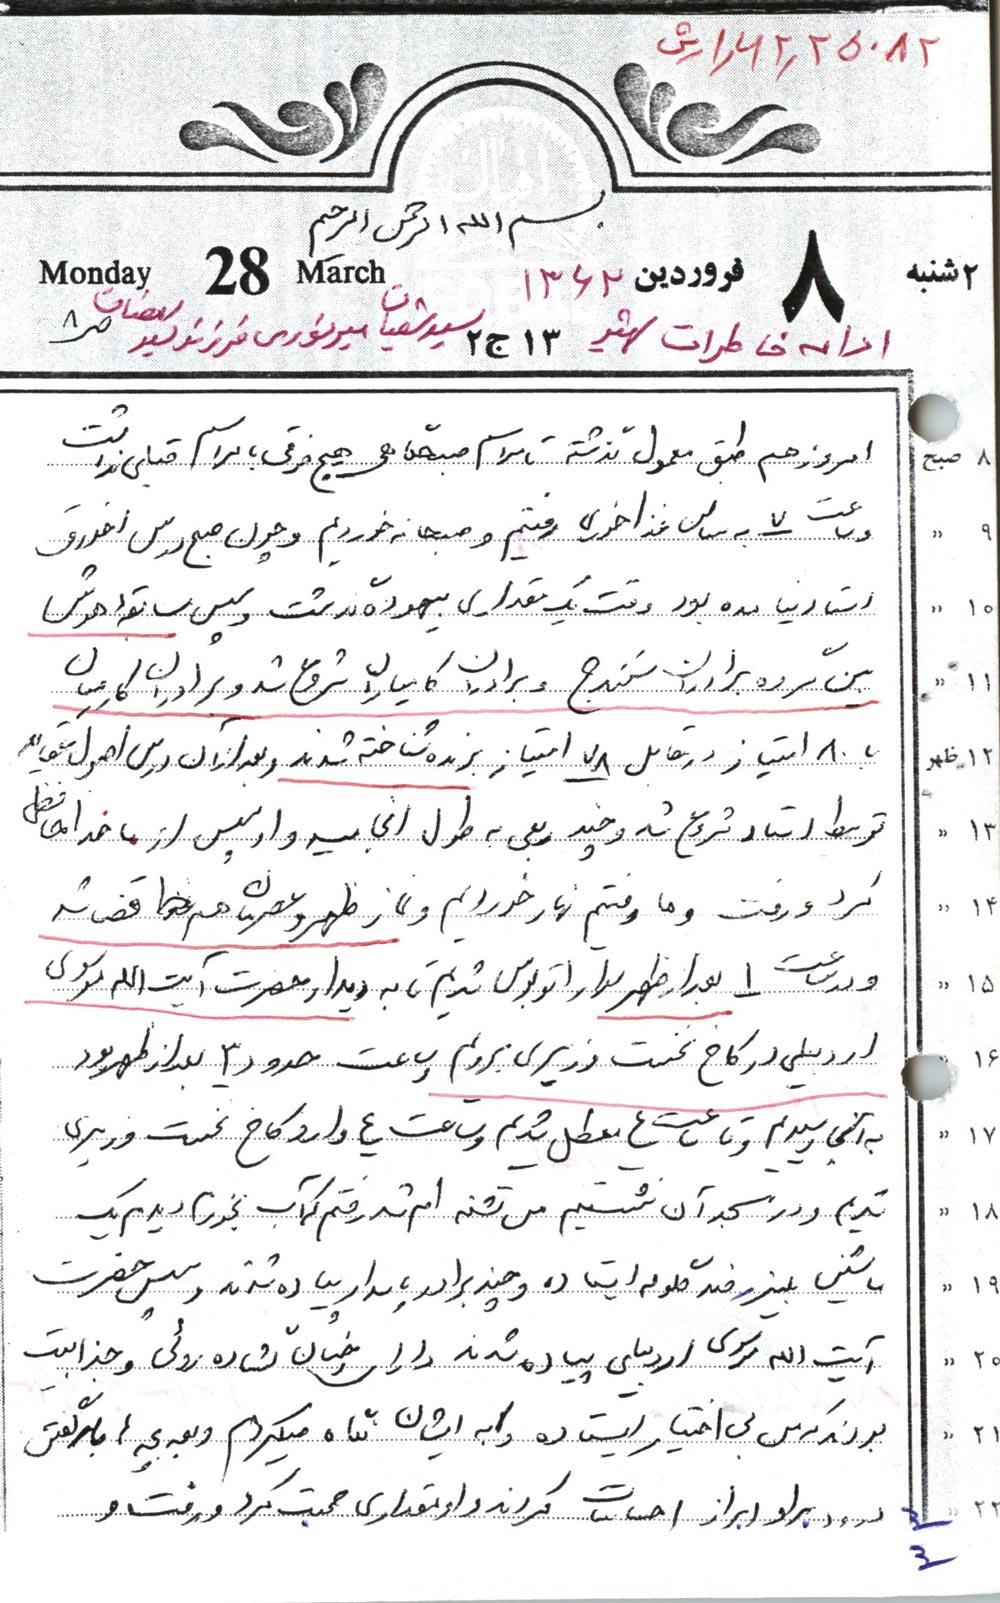 ۲۵۰۸۲
بسم الله الرحمن الرحیم
۲ شنبه ۸ فروردین ۱۳۶۲ March 28 Monday
ادامه خاطرات شهید ۱۳ ج ۲ سید شعبان میرنوری فرزند سید رمضان ص ۸
۸ صبح امروز هم طبق معمول گذشته تا مراسم صبحگاهی هیچ فرقی با مراسم قبلی نداشت
۹ " و ساعت ۷ به سالن غذاخوری رفتیم و صبحانه خوردیم و چون صبح درس اخلاق
۱۰ " استاد نیامده بود وقت یک مقداری بیهوده گذشت و سپس مسابقه هوش
۱۱ " بین گروه برادران سنندج و برادران کامیاران شروع شد و برادران کامیاران
۱۲ ظهر با ۸۰ امتیاز در مقابل ۷۸ امتیاز برنده شناخته شدند و بعد از آن درس اصول عقاید
۱۳ " توسط استاد شروع شد و چند ربعی به طول انجامید و او سپس از ما خداحافظی
۱۴ " کرد و رفت و ما رفتیم نهار خوردیم و نماز ظهر و عصرمان هم قضا شد
۱۵ " و در ساعت ۱ بعد از ظهر سوار اتوبوس شدیم تا به دیدار حضرت آیت الله موسوی
۱۶ " اردبیلی در کاخ نخست وزیری برویم ساعت حدود ۳ بعد از ظهر بود
۱۷ " به آنجا رسیدیم و تا ساعت ۴ معطل شدیم و ساعت ۴ وارد کاخ نخست وزیری
۱۸ " شدیم و در مسجد آن نشستیم من تشنه ام شد رفتم که آب بخورم دیدم یک
۱۹ " ماشین بلیزر ضد گلوله ایستاده و چند برادر پاسدار پیاده شدند و سپس حضرت
۲۰ " آیت الله موسوی اردبیلی پیاده شدند دارای چنان گشاده روئی و جذابیت
۲۱ " بودند که من بی اختیار ایستاده و به ایشان نگاه میکردم و بعد بچه ها با گفتن
۲۲ " درود بر او ابراز احساسات کردند و او مقداری صحبت کرد و رفت و